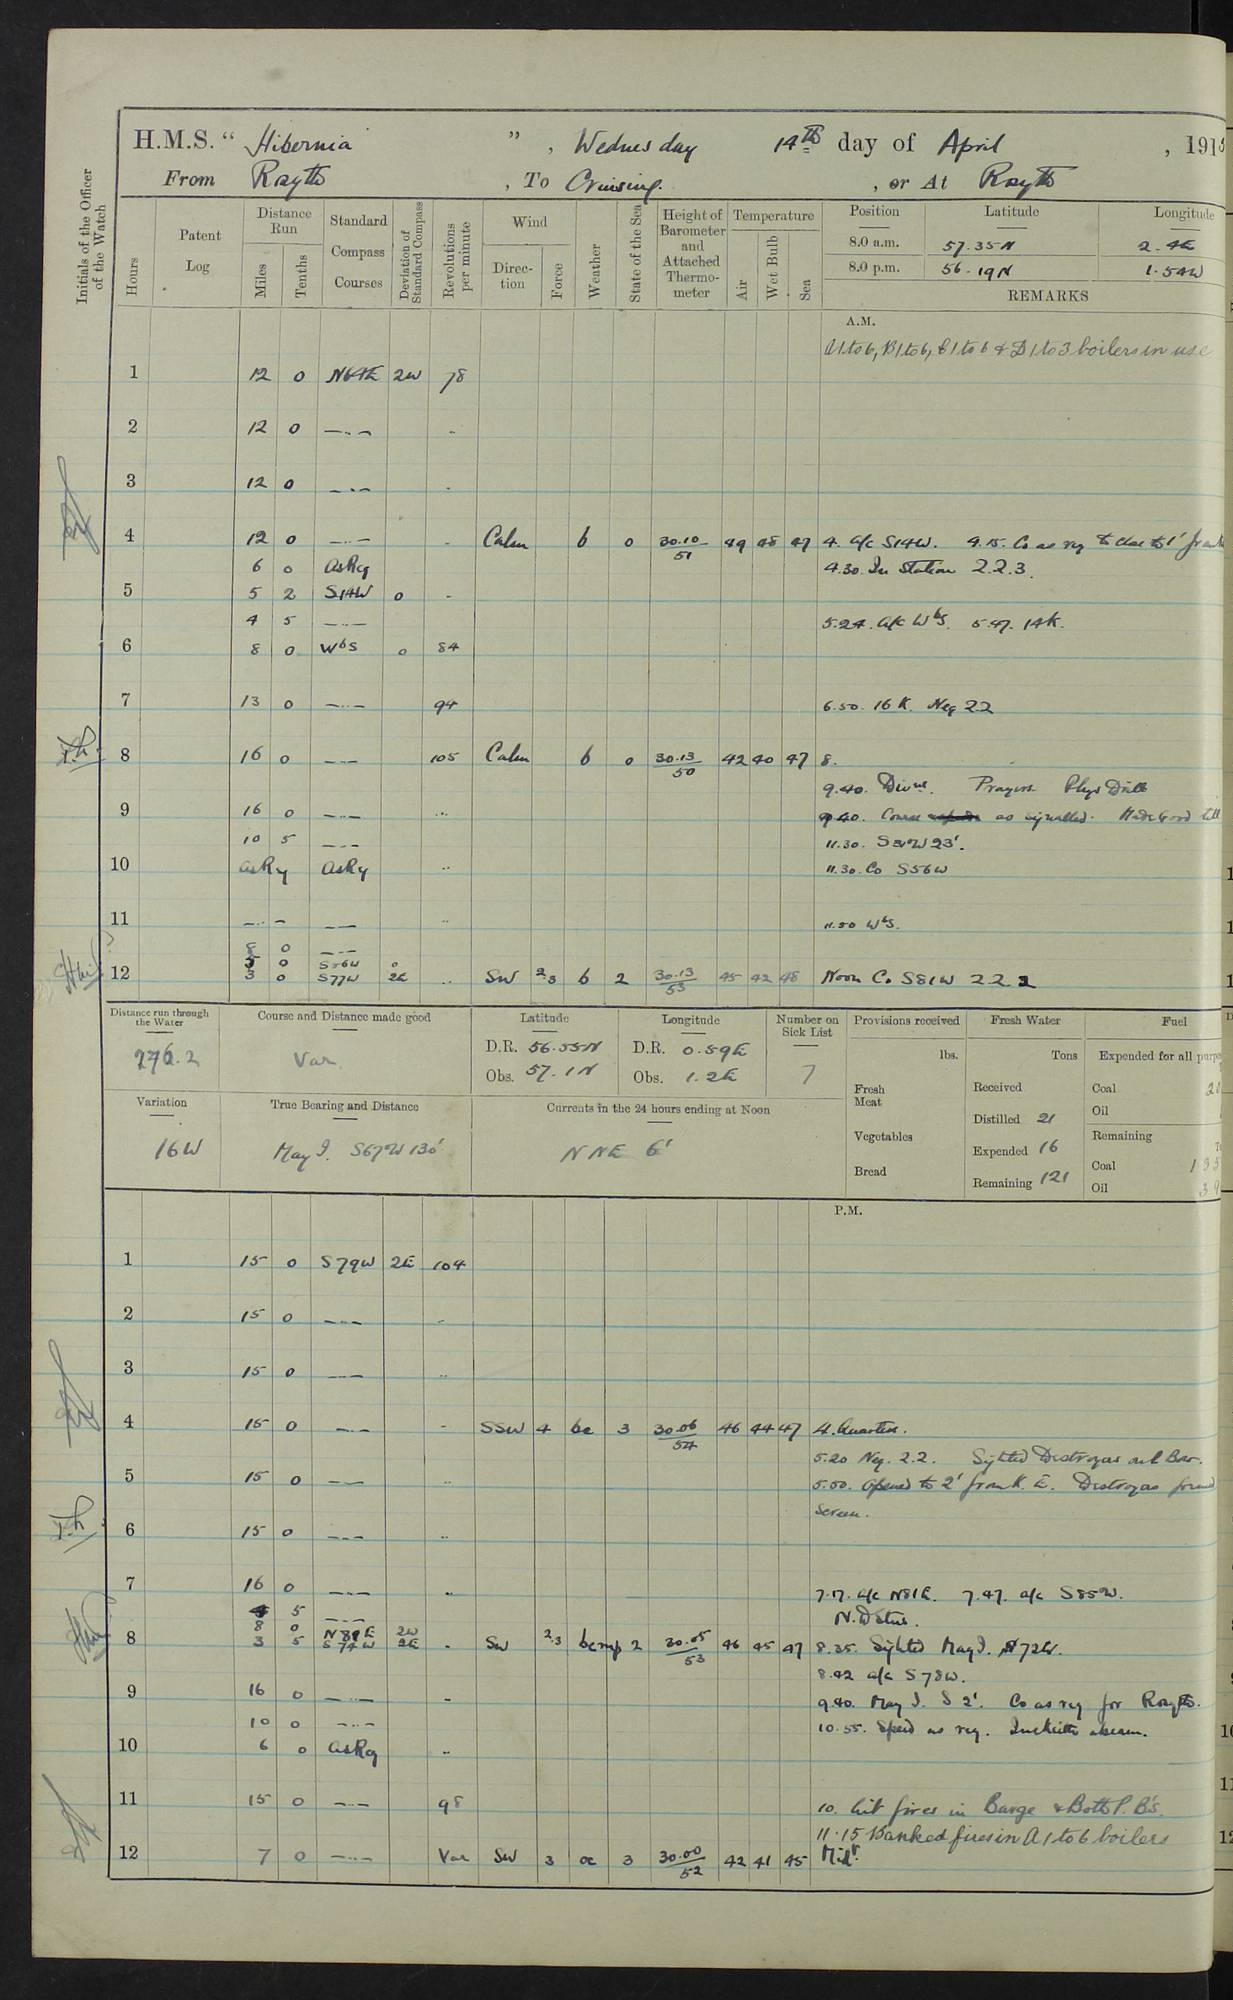 H.M.S. “ Hibernia ” , Wednesday 14th day of April , 191
From Rosyth , To Cruising. , or At Rosyth
Initials of the Officer of the Watch
Hours
Patent Log
Distance Run
Miles
Tenths
Standard Compass Courses
Deviation of Standard Compass
Revolutions per minute
Wind
Direction
Force
Weather
State of the Sea
Height of Barometer and Attached Thermometer
Temperature
Air
Wet Bulb
Sea
Position Latitude Longitude
8.0 a.m. 57.35N 2.4E
8.0 p.m. 56.19N 1.54W
REMARKS
A.M.
A1to6, B1to6, C1to6 & D1to3 boilers in use
1 12 0 N64E 2W 78
2 12 0 —..— ..
3 12 0 —..— ..
4 12 0 —..— .. Calm b 0 30.10/51 49 48 47 4. a/c S14W. 4.15. Co as req to close to 1'
6 0 AsReq 4.30. In Station 2.2.3.
5 5 2 S14W 0 ..
4 5 —..— 5.24. a/c WbS. 5.47. 14K.
6 8 0 WbS 0 84
7 13 0 —..— 94 6.50. 16K. Neg 22
8 16 0 —..— 105 Calm b 0 30.13/50 42 40 47 8.
9.40. Divns. Prayers Phys Drill
9 16 0 —..— .. 9.40. Course as signalled. Made Good till
10 5 —..— 11.30. 23'.
10 asReq AsReq .. 11.30. Co S56W
11 —..— —..— .. 11.50 WbS.
8 0 —..—
5 0 S56W 0
12 3 0 S77W 2E .. SW 2.3 b 2 30.13/53 45 42 48 Noon Co S81W 2 2 2
Distance run through the Water
276.2
Course and Distance made good
Var.
Latitude
D.R. 56.55N
Obs. 57.1N
Longitude
D.R. 0.59E
Obs. 1.2E
Number on Sick List
7
Provisions received
lbs.
Fresh Meat
Vegetables
Bread
Fresh Water
Tons
Received
Distilled 21
Expended 16
Remaining 121
Fuel
Expended for all
Coal
Oil
Remaining
Coal
Oil
Variation
16W
True Bearing and Distance
May I. S67W 130'
Currents in the 24 hours ending at Noon
NNE 6'
P.M.
1 15 0 S79W 2E 104
2 15 0 —..— ..
3 15 0 —..— ..
4 15 0 —..— .. SSW 4 bc 3 30.06/54 46 44 47 4. Quarters.
5.20 Neg. 2.2. Sighted Destroyers on Bow.
5 15 0 —..— .. 5.50. Opened to 2' from K.E. Destroyers formed
screen.
6 15 0 —..— ..
7 16 0 —..— .. 7.17. a/c N81E. 7.47. a/c S85W.
4 5 —..— N. Detns.
8 0 N81E 2W
8 3 5 S74W 2E .. SW 2.3 bcmp 2 30.05/53 46 45 47 8.35. Sighted May I. 72W.
8.42 a/c S78W.
9 16 0 —..— .. 9.40. May I. S 2'. Co as req for Rosyth.
10 0 —..— 10.55. Speed as req. Inchkeith abeam.
10 6 0 asReq ..
11 15 0 —..— 98 10. Lit fires in Barge & Both P.B's.
11.15 Banked fires in A1to6 boilers
12 7 0 —..— Var SW 3 oc 3 30.00/52 42 41 45 Midt.